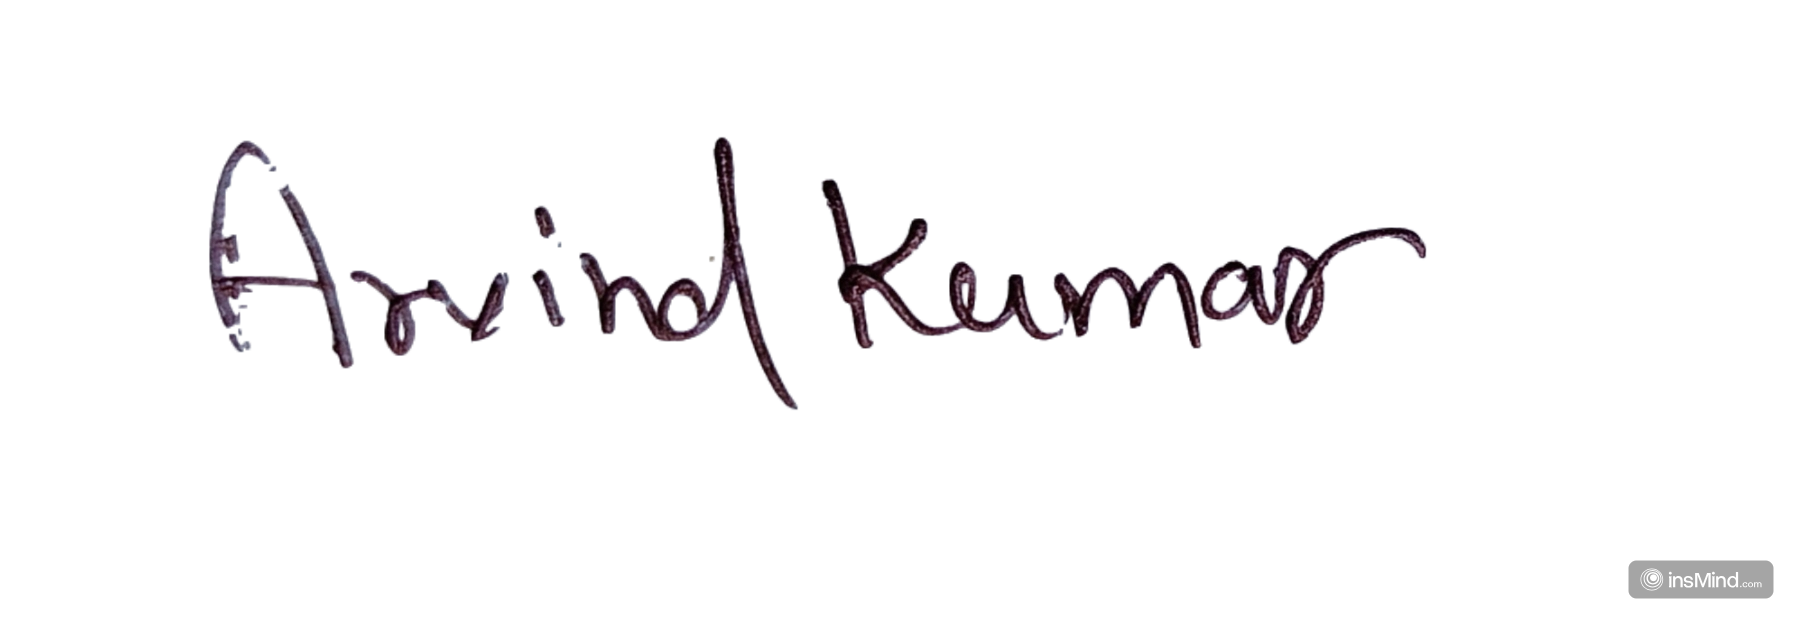 Arvind Kumar
insMind.com